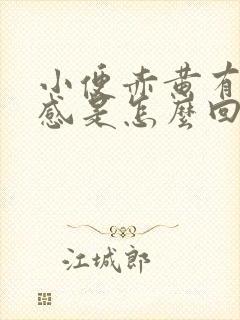 小便赤黄有
感是怎麼回
江城郎